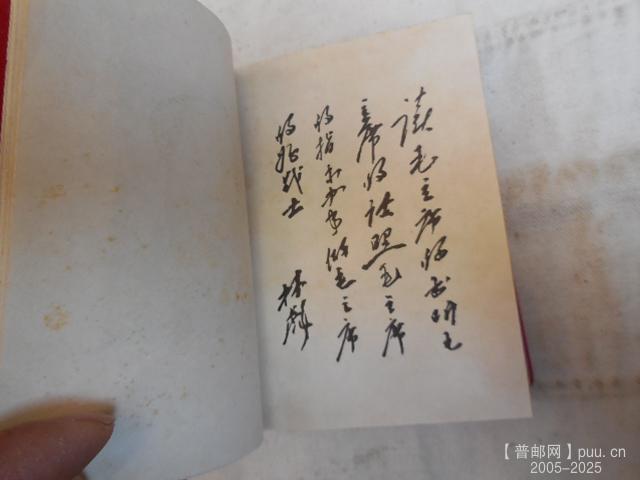 读毛主席的书听毛
主席的话照毛主席
的指示办事做毛主席
的好战士
林彪
【普邮网】puu.cn
2005-2025